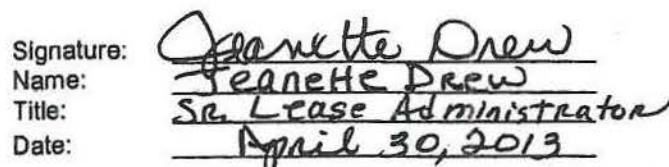 Signature: Jeanette Drew
Name: Jeanette Drew
Title: SR. Lease Administrator
Date: April 30, 2013